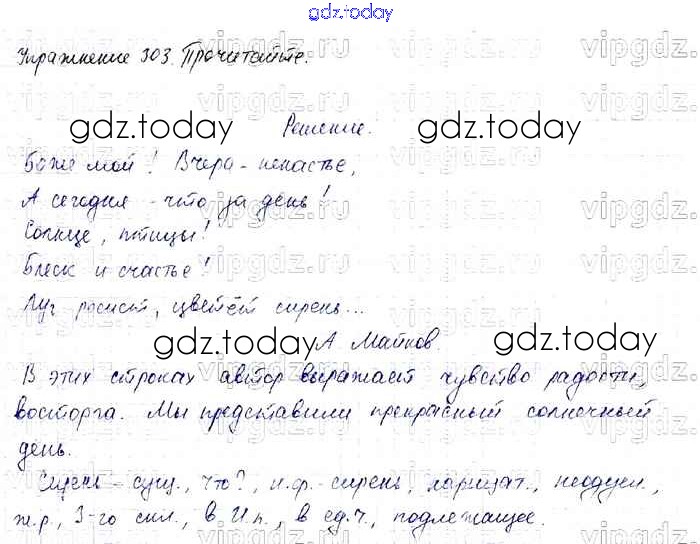 gdz.today
Упражнение 303. Прочитайте.
Решение.
Боже мой! Вчера - ненастье,
А сегодня - что за день!
Солнце, птицы!
Блеск и счастье!
Луг росист, цветёт сирень...
А. Майков.
В этих строках автор выражает чувство радости,
восторга. Мы представили прекрасный солнечный
день.
Сирень - сущ., что?, н.ф. - сирень, нарицат., неодуш.,
ж.р., 3-го скл., в И.п., в ед.ч., подлежащее.